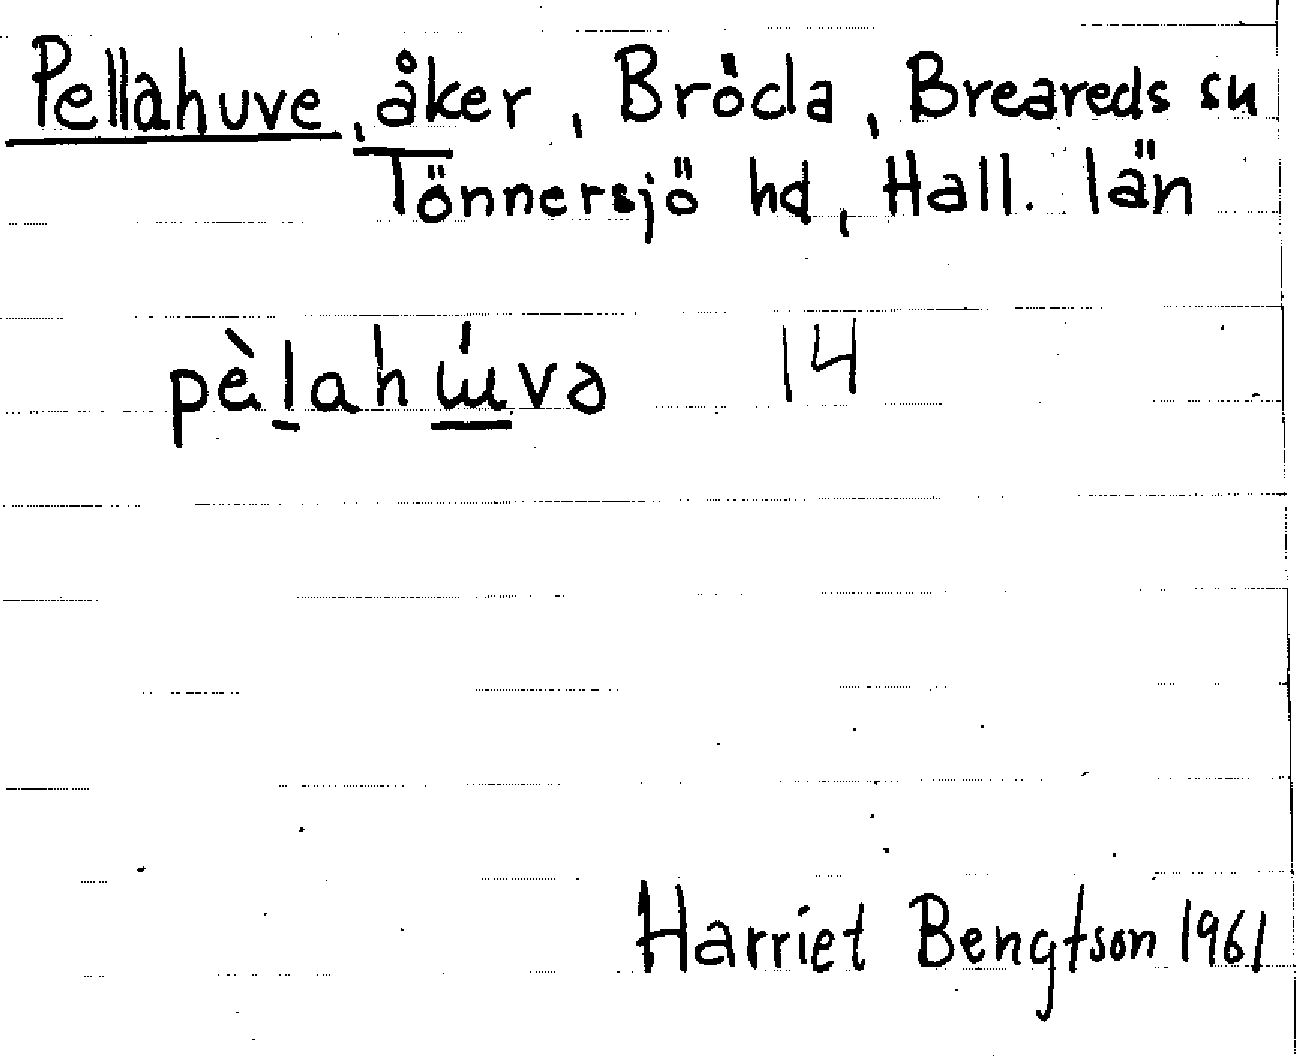 Pellahuve, åker, Bröda, Breareds sn
Tönnersjö hd, Hall. län
pèlahɯ́və 14
Harriet Bengtson 1961